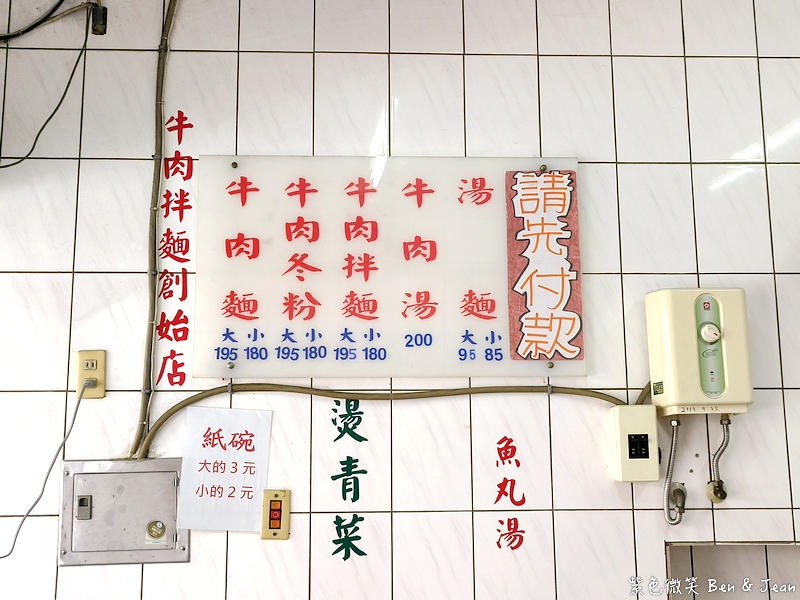 請先付款
湯麵
大 小
95 85
牛肉湯
200
牛肉拌麵
大 小
195 180
牛肉冬粉
大 小
195 180
牛肉麵
大 小
195 180
牛肉拌麵創始店
紙碗
大的3元
小的2元
燙青菜
魚丸湯
紫色微笑 Ben & Jean